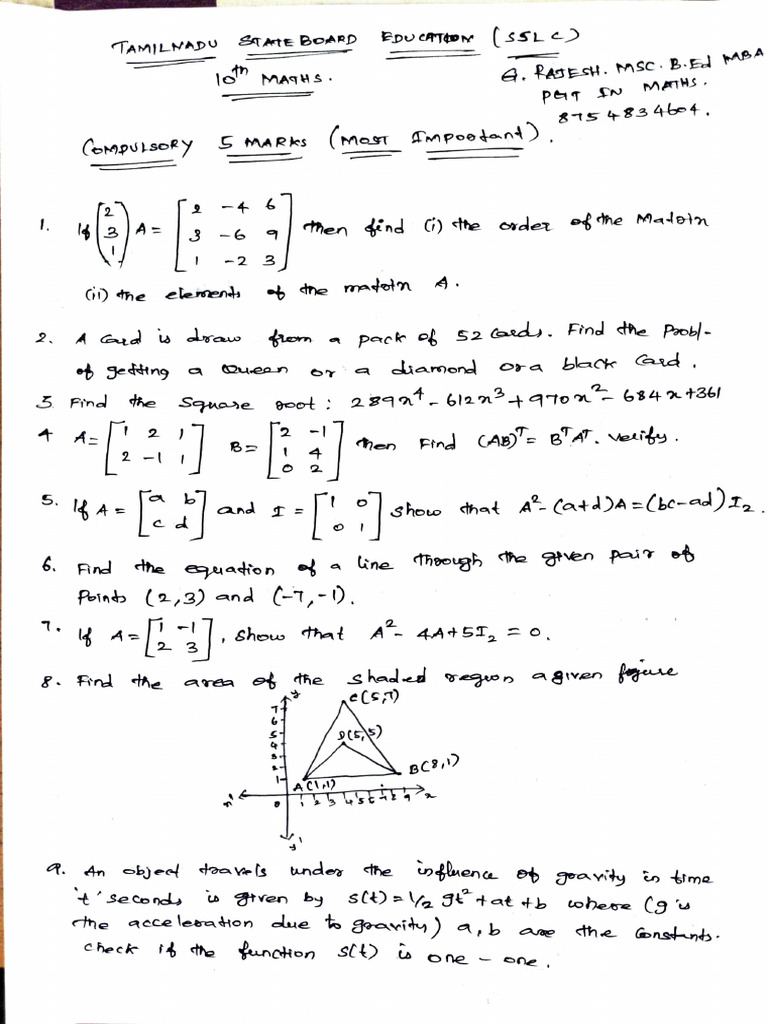 TAMILNADU STATE BOARD EDUCATION (SSLC)
10th MATHS.
G. RAJESH. MSC. B.Ed MBA
PGT IN MATHS.
8754834604.
COMPULSORY 5 MARKS (MOST Important).
1. If (2 3 1) A = [2 -4 6
3 -6 9
1 -2 3] then find (i) the order of the Matrix
(ii) the elements of the matrix A.
2. A card is draw from a pack of 52 cards. Find the Probl-
of getting a Queen or a diamond or a black card.
3. Find the square root : 289x⁴ - 612x³ + 970x² - 684x + 361
4 A = [1 2 1
2 -1 1] B = [2 -1
1 4
0 2] then Find (AB)ᵀ = BᵀAᵀ. Verify.
5. If A = [a b
c d] and I = [1 0
0 1] show that A² - (a+d)A = (bc-ad) I₂.
6. Find the equation of a line through the given pair of
Points (2,3) and (-7,-1).
7. If A = [1 -1
2 3], show that A² - 4A + 5I₂ = 0.
8. Find the area of the shaded region a given figure
y
C(5,7)
7
6
5
4
3
2
1
D(5,5)
B(8,1)
A(1,1)
x' 0 1 2 3 4 5 6 7 8 9 x
y'
9. An object travels under the influence of gravity in time
't' seconds is given by s(t) = 1/2 gt² + at + b where (g is
the acceleration due to gravity) a, b are the constants.
check if the function s(t) is one - one.